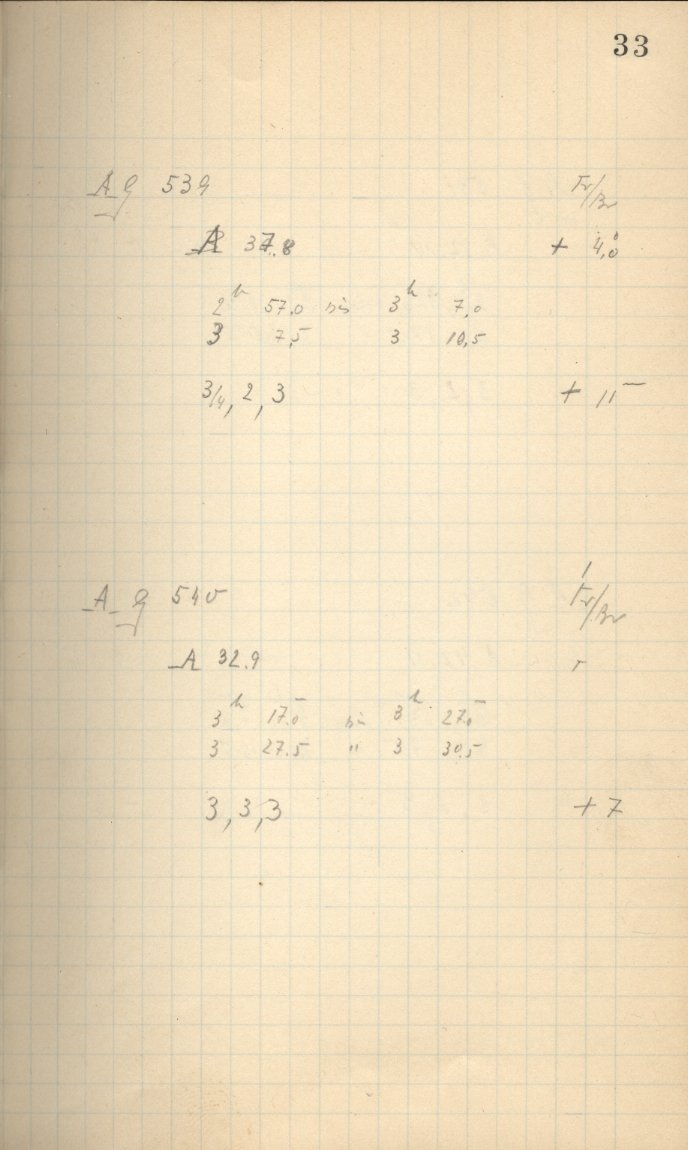 33
AG 539 Fr/Br
A 37.8 + 4,0
2h 57.0 bis 3h 7,0
3 7,5 3 10,5
3/4, 2, 3 + 11
AG 540 Fr/Br
A 32.9
3h 17.0 bis 3h 27.0
3 27.5 " 3 30.5
3, 3, 3 + 7